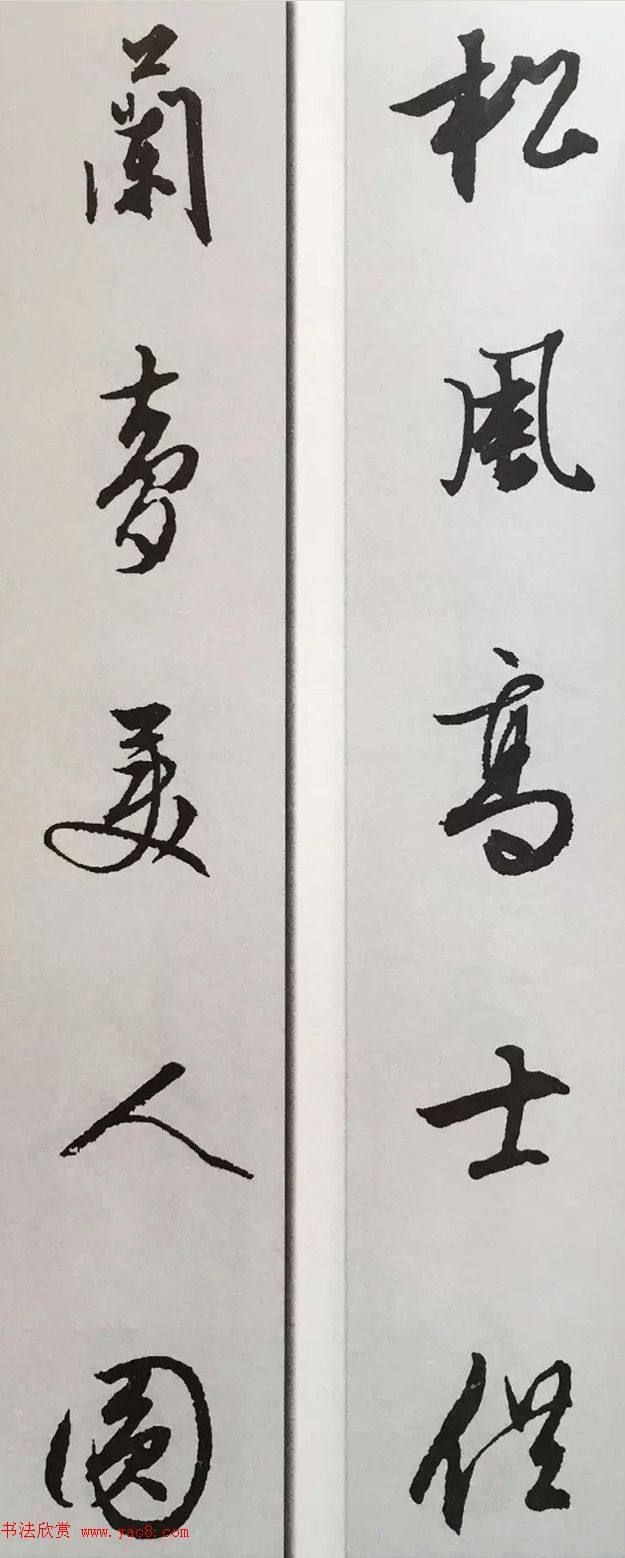 松風高士
蘭夢美人圓
书法欣赏 www.yac8.com